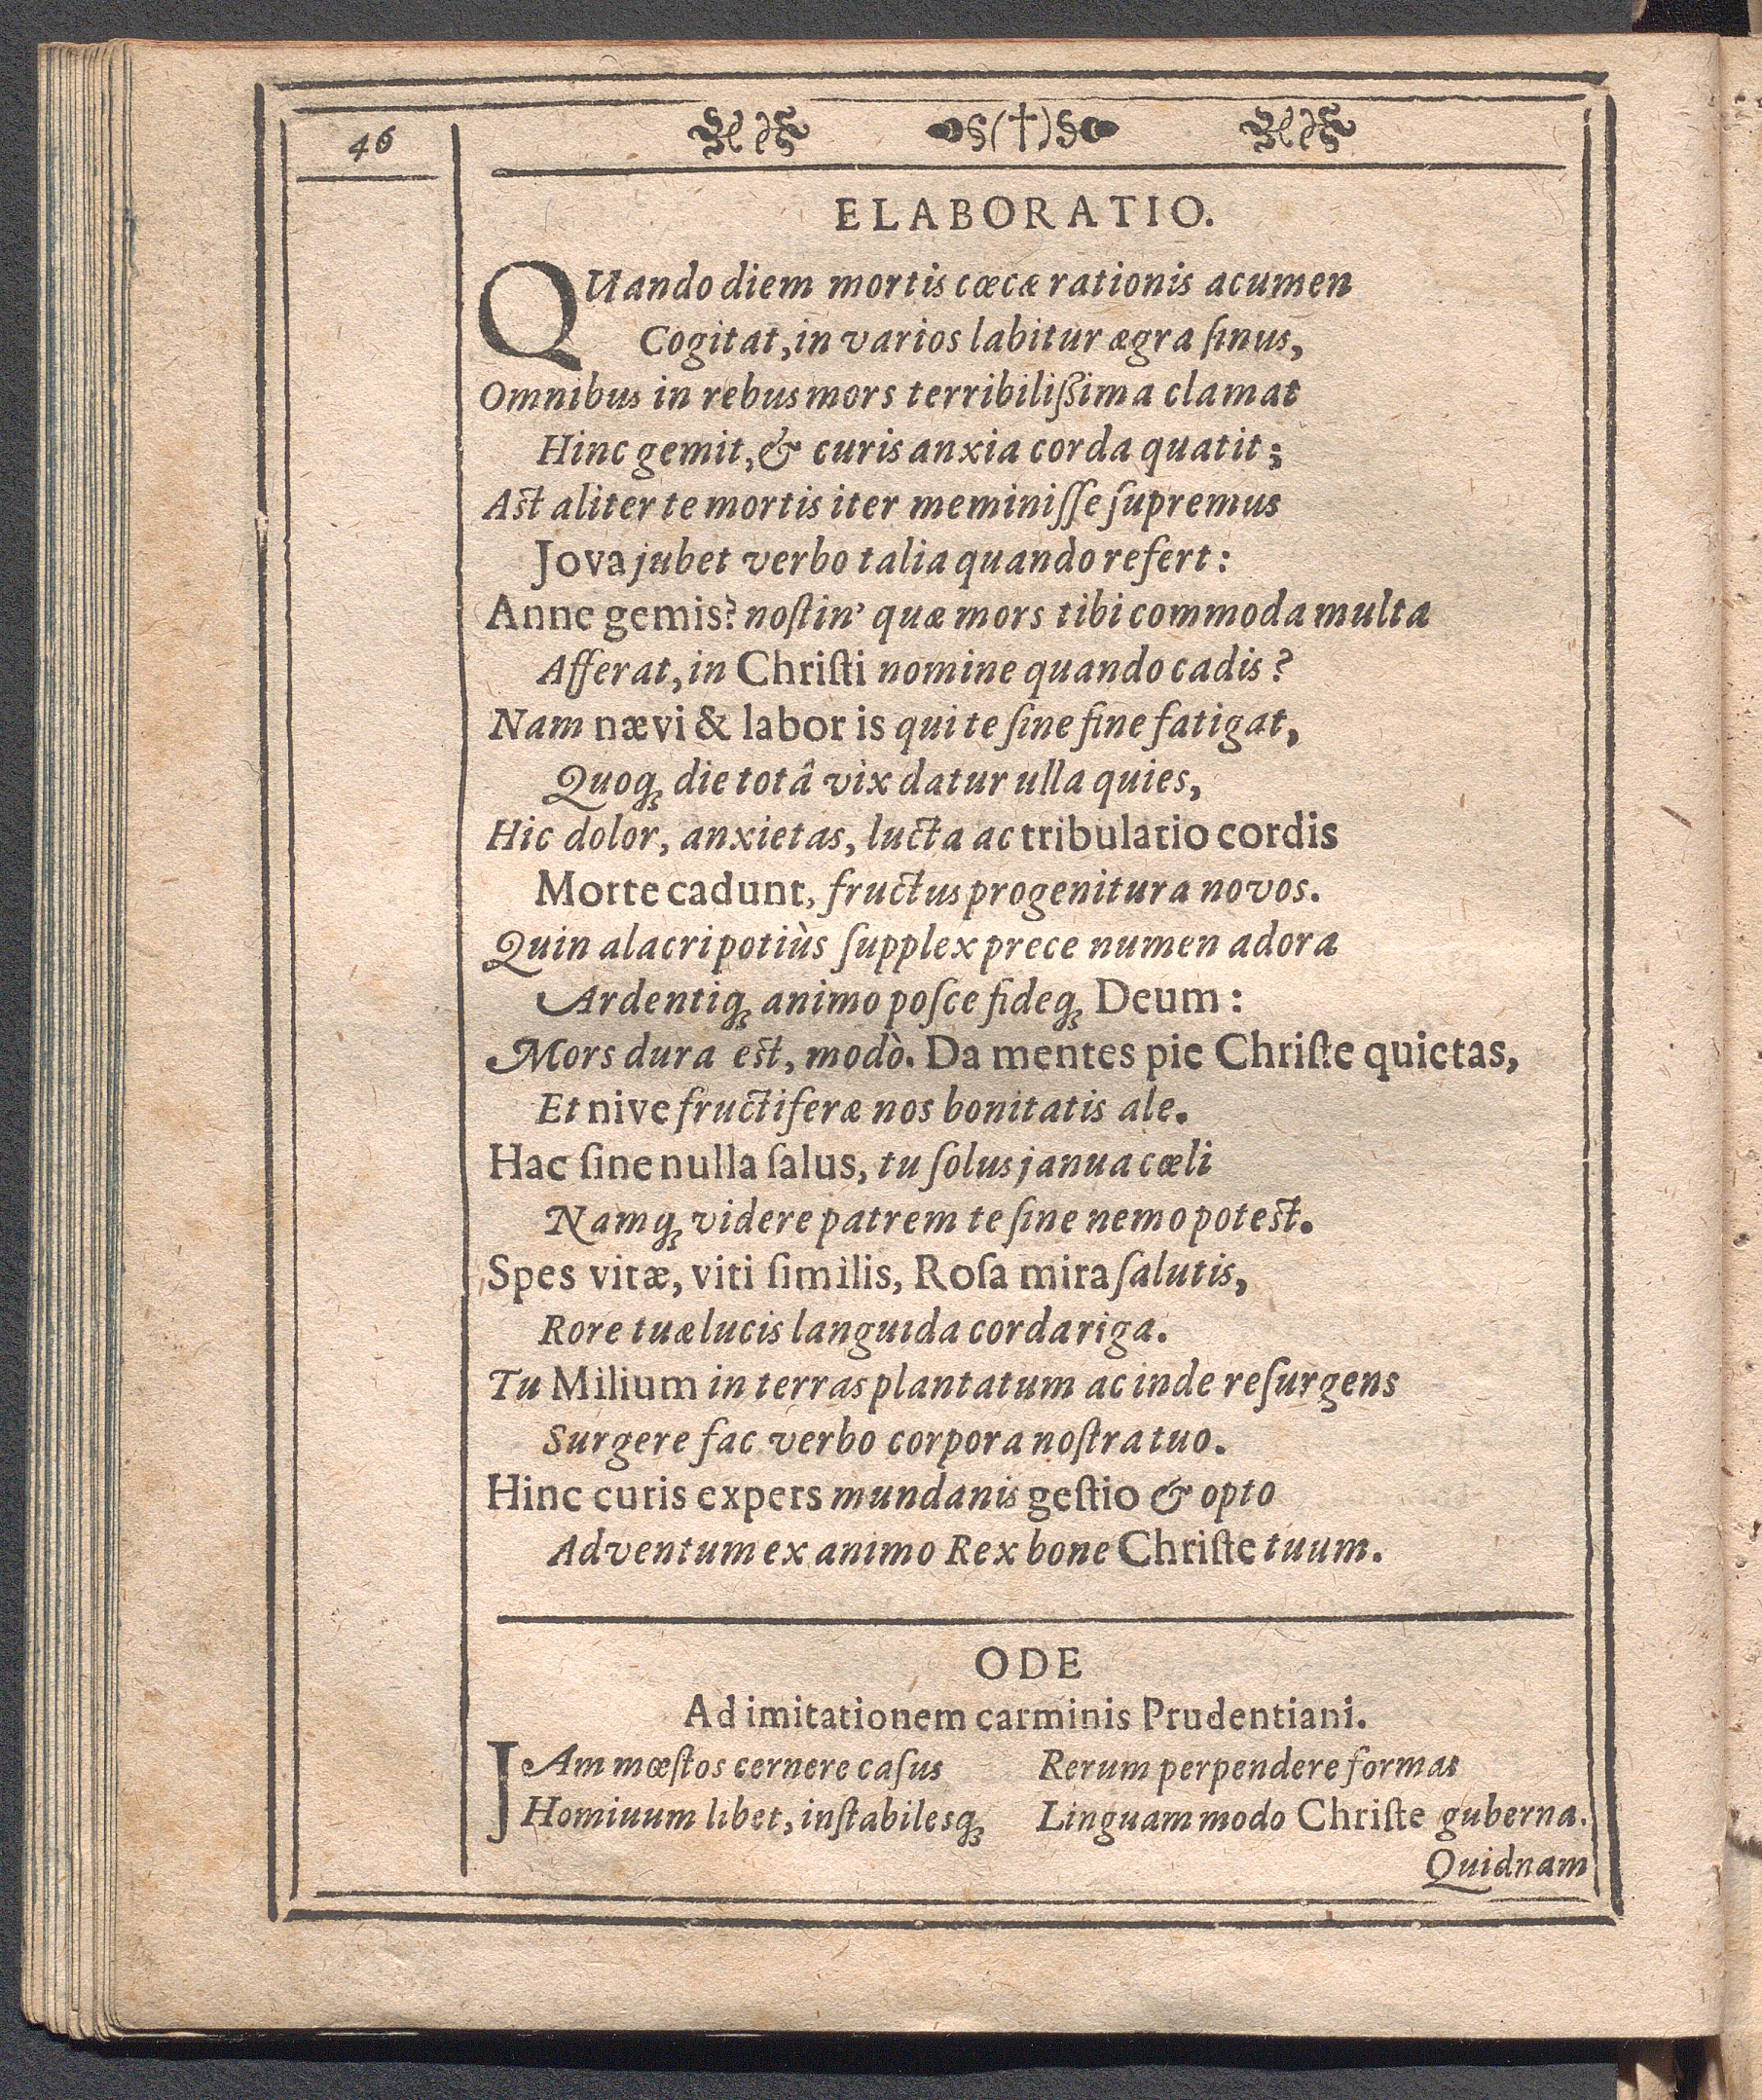 46
§(†)§
ELABORATIO.
QUando diem mortis cœcæ rationis acumen
Cogitat, in varios labitur ægra ſinus,
Omnibus in rebus mors terribilißima clamat
Hinc gemit, & curis anxia corda quatit;
Ast aliter te mortis iter meminiſſe ſupremus
Jova jubet verbo talia quando refert:
Anne gemis? noſtin' quæ mors tibi commoda multa
Afferat, in Chriſti nomine quando cadis?
Nam nævi & labor is qui te ſine fine fatigat,
Quoq́ꝫ die totâ vix datur ulla quies,
Hic dolor, anxietas, lucta ac tribulatio cordis
Morte cadunt, fructus progenitura novos.
Quin alacri potiùs ſupplex prece numen adora
Ardentiqꝫ animo poſce fideqꝫ Deum:
Mors dura est, modò. Da mentes pie Chriſte quietas,
Et nive fructiferæ nos bonitatis ale.
Hac ſine nulla ſalus, tu ſolus janua cœli
Namqꝫ videre patrem te ſine nemo potest.
Spes vitæ, viti ſimilis, Roſa mira ſalutis,
Rore tuæ lucis languida corda riga.
Tu Milium in terras plantatum ac inde reſurgens
Surgere fac verbo corpora noſtra tuo.
Hinc curis expers mundanis geſtio & opto
Adventum ex animo Rex bone Chriſte tuum.
ODE
Ad imitationem carminis Prudentiani.
JAm mœſtos cernere caſus
Homiuum libet, inſtabilesqꝫ
Rerum perpendere formas
Linguam modo Chriſte guberna.
Quidnam